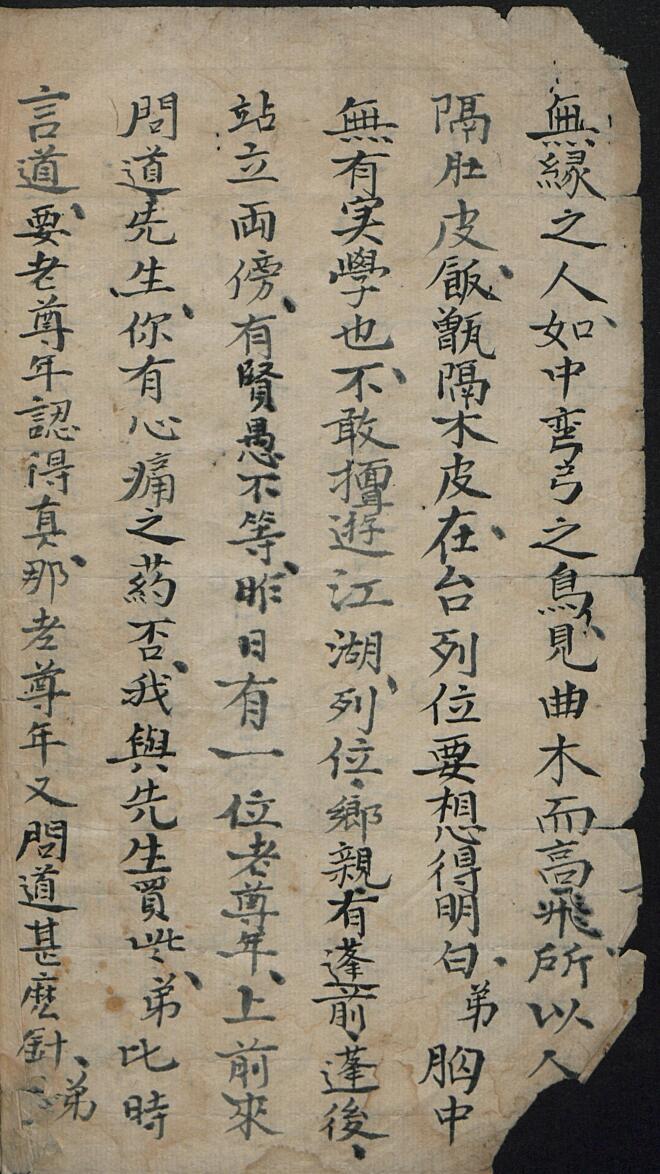 無緣之人、如中弯弓之鳥、見曲木而高飛、所以人
隔肚皮、飯甑隔木皮、在台列位要想得明白、弟胸中
無有实學也、不敢擅遊江湖、列位、鄉親、有蓬前、蓬後、
站立両傍、有賢愚不等、昨日有一位老尊年、上前來
問道先生、你有心痛之药否、我與先生買些、弟比時
言道、要老尊年認得真、那老尊年又問道甚麽針、弟